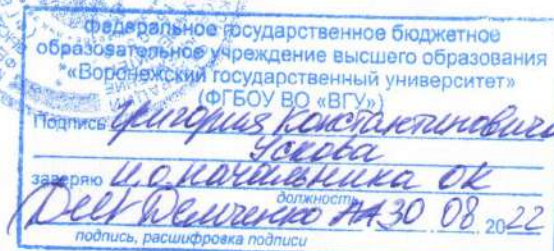 федеральное государственное бюджетное
образовательное учреждение высшего образования
«Воронежский государственный университет»
(ФГБОУ ВО «ВГУ»)
Подпись Григория Константиновича
Ускова
заверяю и.о. начальника ОК
должность
30 08. 2022
подпись, расшифровка подписи